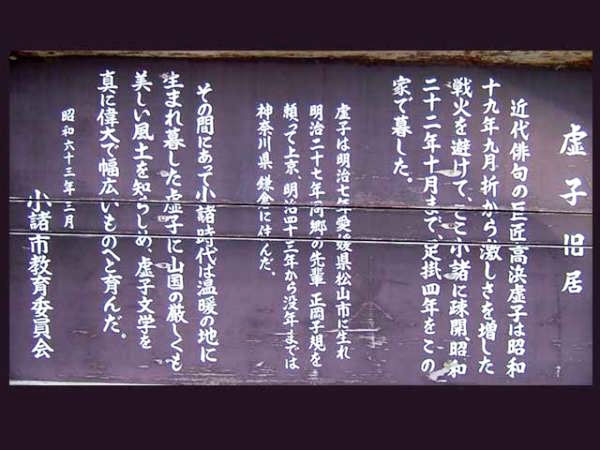 虚子旧居
近代俳句の巨匠高浜虚子は昭和
十九年九月、折から激しさを増した
戦火を避けて、ここ小諸に疎開、昭和
二十二年十月まで、足掛四年をこの
家で暮した。
虚子は明治七年愛媛県松山市に生れ
明治二十七年、同郷の先輩 正岡子規を
頼って上京、明治四十三年から没年までは
神奈川県 鎌倉に住んだ。
その間にあって小諸時代は温暖の地に
生まれ暮した虚子に山国の厳しくも
美しい風土を知らしめ、虚子文学を
真に偉大で幅広いものへと育んだ。
昭和六十三年三月
小諸市教育委員会